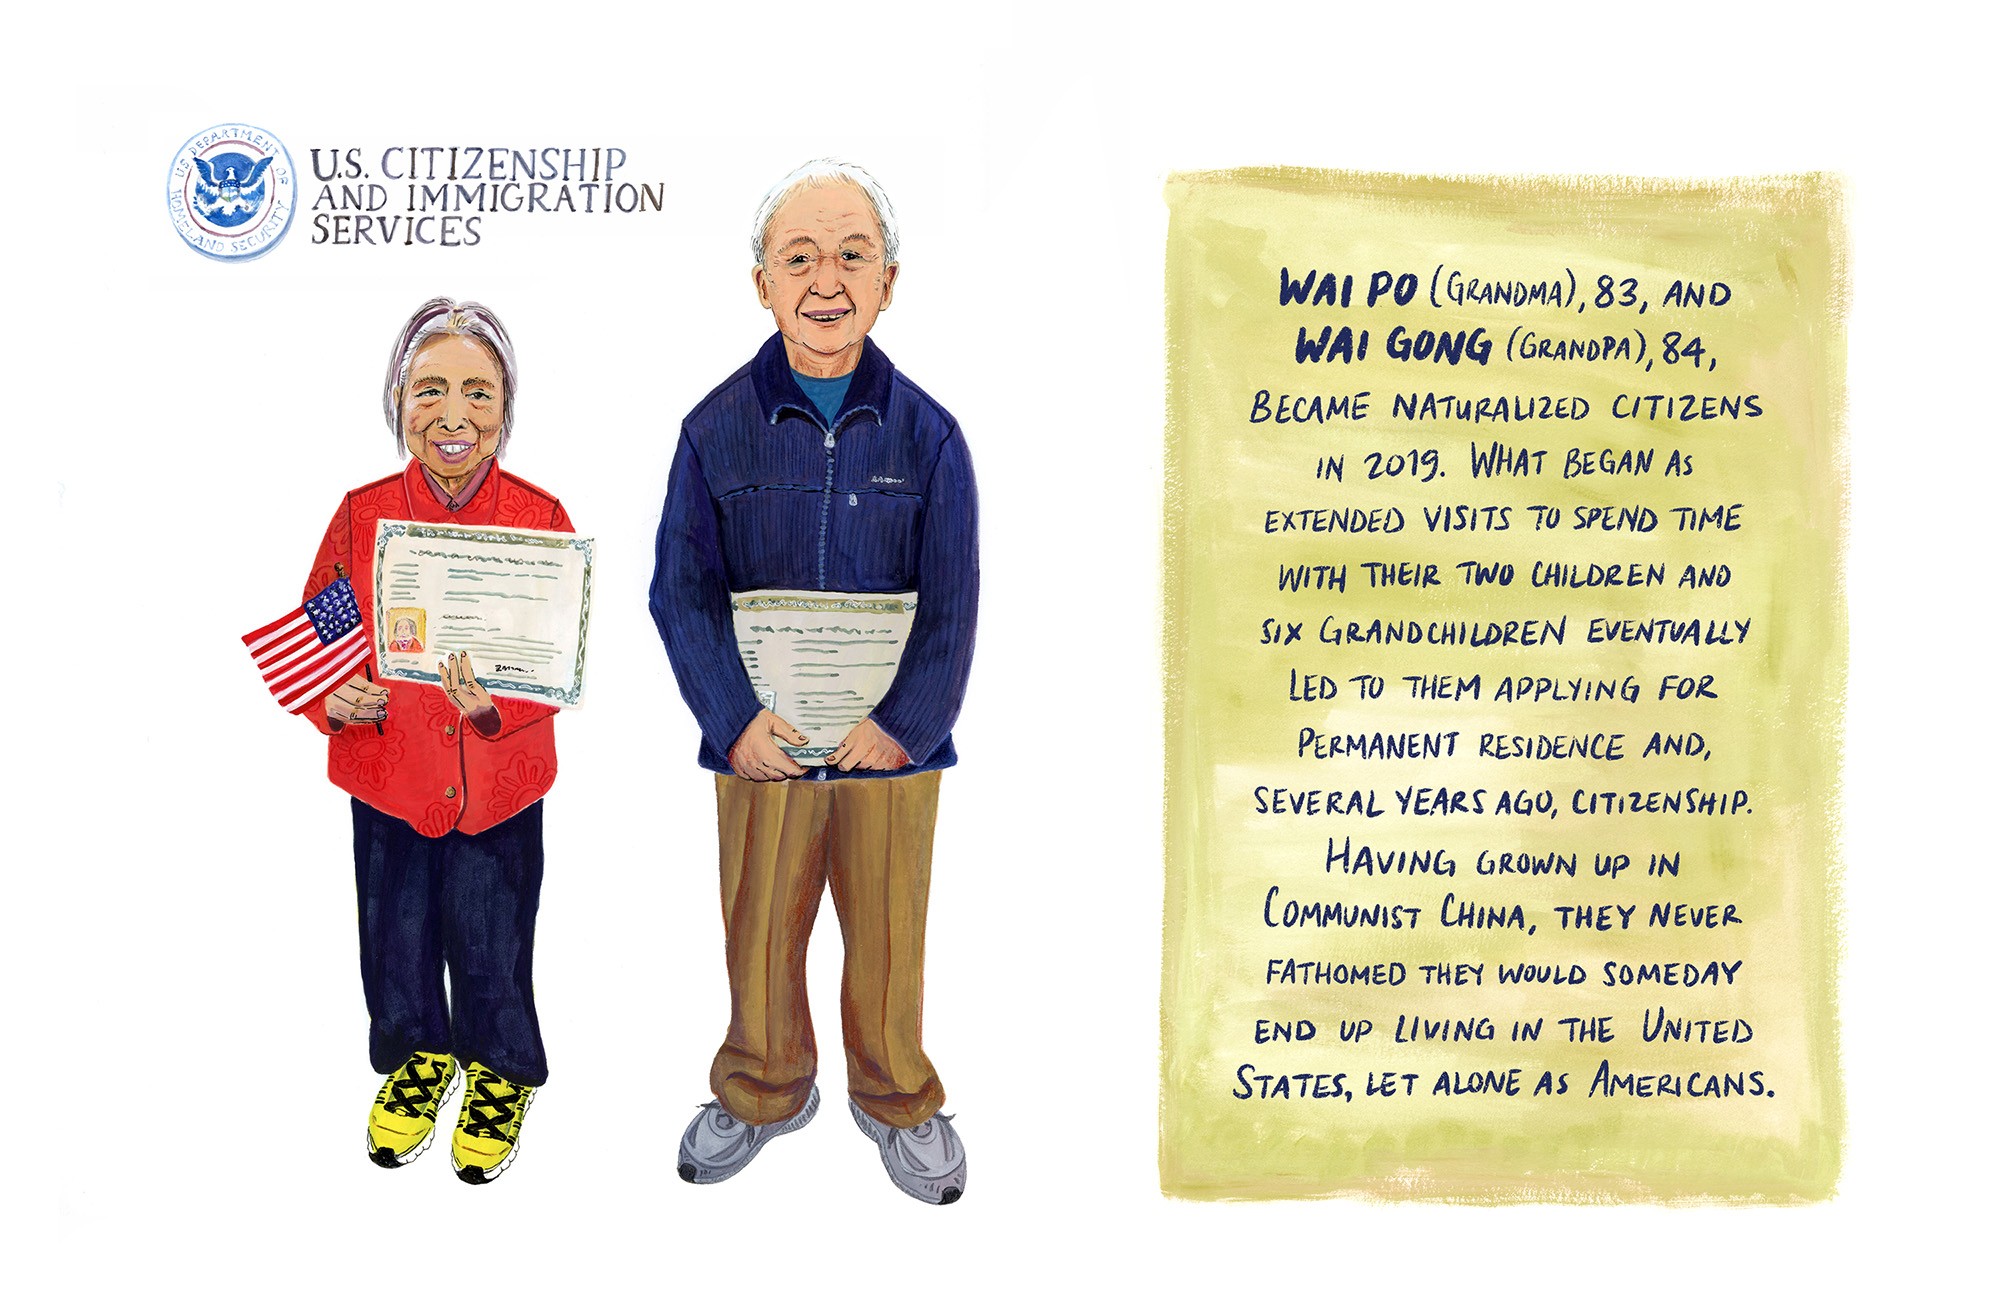 U.S. DEPARTMENT OF
HOMELAND SECURITY
U.S. CITIZENSHIP
AND IMMIGRATION
SERVICES
WAI PO (GRANDMA), 83, AND
WAI GONG (GRANDPA), 84,
BECAME NATURALIZED CITIZENS
IN 2019. WHAT BEGAN AS
EXTENDED VISITS TO SPEND TIME
WITH THEIR TWO CHILDREN AND
SIX GRANDCHILDREN EVENTUALLY
LED TO THEM APPLYING FOR
PERMANENT RESIDENCE AND,
SEVERAL YEARS AGO, CITIZENSHIP.
HAVING GROWN UP IN
COMMUNIST CHINA, THEY NEVER
FATHOMED THEY WOULD SOMEDAY
END UP LIVING IN THE UNITED
STATES, LET ALONE AS AMERICANS.